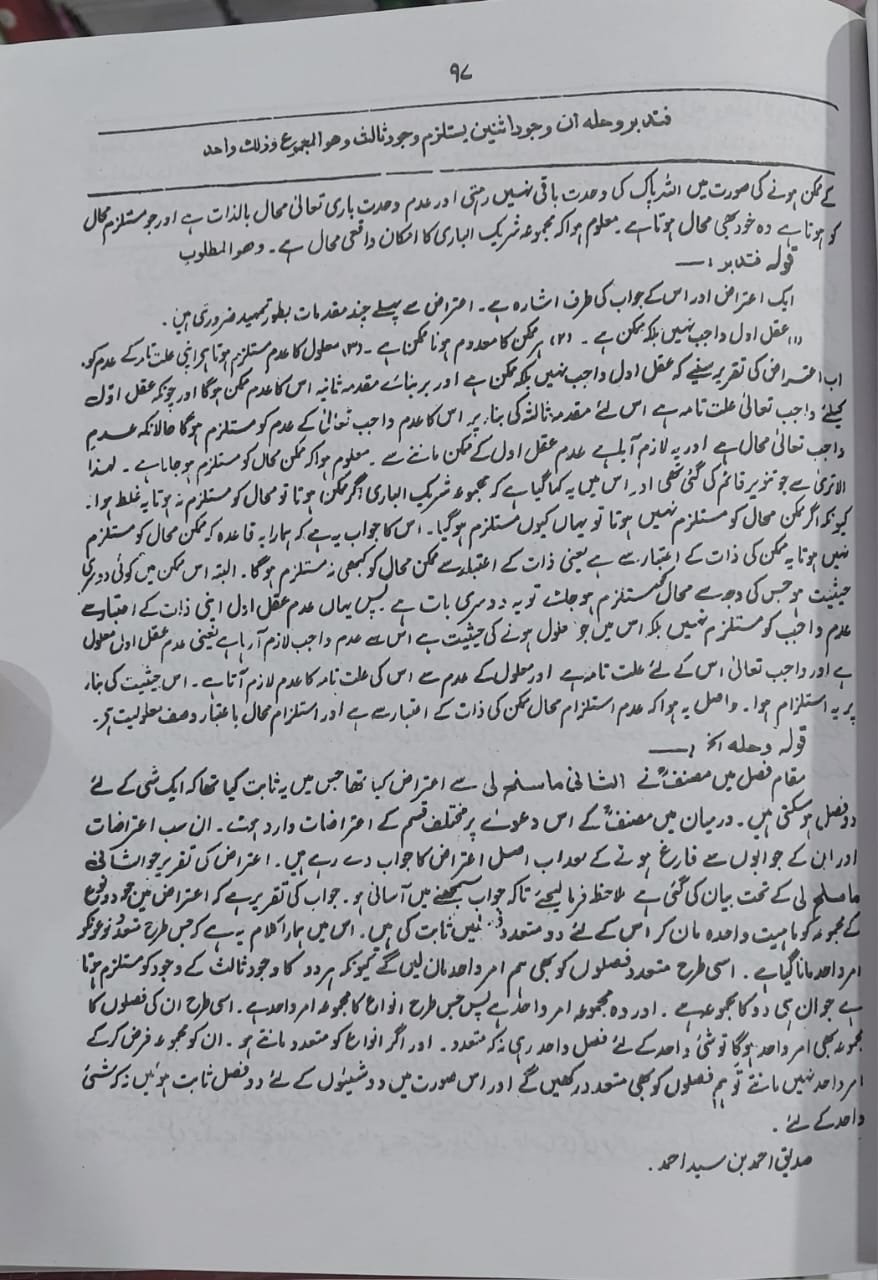 ۹۸
فتدبر وحله ان وجود اثنین یستلزم وجود ثالث وھو المجموع وذلک واحد
کے ممکن ہونے کی صورت میں اللہ پاک کی وحدت باقی نہیں رہتی اور عدم وحدت باری تعالیٰ محال بالذات ہے اور جو مستلزم محال
کو ہوتا ہے وہ خود بھی محال ہوتا ہے۔ معلوم ہوا کہ مجموعہ شریک الباری کا امکان واقعی محال ہے۔ وھو المطلوب
قولہ فتدبر :—
ایک اعتراض اور اس کے جواب کی طرف اشارہ ہے۔ اعتراض سے پہلے چند مقدمات بطور تمہید ضروری ہیں۔
(۱) عقل اول واجب نہیں بلکہ ممکن ہے۔ (۲) ہر ممکن کا معدوم ہونا ممکن ہے۔ (۳) معلول کا عدم مستلزم ہوتا ہے اپنی علت تامہ کے عدم کو۔
اب اعتراض کی تقریر سنیے کہ عقل اول واجب نہیں بلکہ ممکن ہے اور بر بنائے مقدمہ ثانیہ اس کا عدم ممکن ہوگا اور چونکہ عقل اوّل
کیلئے واجب تعالیٰ علت تامہ ہے اس لئے مقدمہ ثالثہ کی بناء پر اس کا عدم واجب تعالیٰ کے عدم کو مستلزم ہوگا حالانکہ عدم
واجب تعالیٰ محال ہے اور یہ لازم آیا ہے عدم عقل اول کے ممکن ماننے سے۔ معلوم ہوا کہ ممکن محال کو مستلزم ہو جاتا ہے۔ لہذا
الاتریٰ سے جو تنویر قائم کی گئی تھی اور اس میں یہ کہا گیا ہے کہ مجموعہ شریک الباری اگر ممکن ہوتا تو محال کو مستلزم نہ ہوتا یہ غلط ہوا۔
کیونکہ اگر ممکن محال کو مستلزم نہیں ہوتا تو یہاں کیوں مستلزم ہوگیا۔ اس کا جواب یہ ہے کہ ہمارا یہ قاعدہ کہ ممکن محال کو مستلزم
نہیں ہوتا یہ ممکن کی ذات کے اعتبار سے ہے یعنی ذات کے اعتبار سے ممکن محال کو کبھی نہ مستلزم ہوگا۔ البتہ اس ممکن میں کوئی دوسری
حیثیت ہو جس کی وجہ سے محال کو مستلزم ہو جائے تو یہ دوسری بات ہے پس یہاں عدم عقل اول اپنی ذات کے اعتبار سے
عدم واجب کو مستلزم نہیں بلکہ اس میں جو معلول ہونے کی حیثیت ہے اس سے عدم واجب لازم آ رہا ہے یعنی عدم عقل اول معلول
ہے اور واجب تعالیٰ اس کے لئے علت تامہ ہے اور معلول کے عدم سے اس کی علت تامہ کا عدم لازم آتا ہے۔ اس حیثیت کی بناء
پر یہ استلزام ہوا۔ حاصل یہ ہوا کہ عدم استلزام محال ممکن کی ذات کے اعتبار سے ہے اور استلزام محال باعتبار وصف معلولیت ہے۔
قولہ وحلہ الخ :—
مقام فصل میں مصنفؒ نے الثانی ماسنح لی سے اعتراض کیا تھا جس میں یہ ثابت کیا تھا کہ ایک شی کے لئے
دو فصل ہو سکتی ہیں۔ درمیان میں مصنفؒ کے اس دعوے پر مختلف قسم کے اعتراضات وارد ہوئے۔ ان سب اعتراضات
اور ان کے جوابوں سے فارغ ہونے کے بعد اب اصل اعتراض کا جواب دے رہے ہیں۔ اعتراض کی تقریر جو الثانی
ماسنح لی کے تحت بیان کی گئی ہے ملاحظہ فرمالیجئے تاکہ جواب سمجھنے میں آسانی ہو۔ جواب کی تقریر ہے کہ اعتراض میں جو دو نوع
کے مجموعہ کو ماہیت واحدہ مان کر اس کے لئے دو متعدد ثابت کی ہیں۔ اس میں ہمارا کلام یہ ہے کہ جس طرح متعدد نوعوں کو
امر واحد مانا گیا ہے۔ اسی طرح متعدد فصلوں کو بھی ہم امر واحد مان لیں گے کیونکہ ہر دو کا وجود ثالث کے وجود کو مستلزم ہوتا
ہے جو ان ہی دو کا مجموعہ ہے۔ اور وہ مجموعہ امر واحد ہے پس جس طرح انواع کا مجموعہ امر واحد ہے۔ اسی طرح ان کی فصلوں کا
مجموعہ بھی امر واحد ہوگا تو شئی واحد کے لئے فصل واحد رہی نہ کہ متعدد۔ اور اگر انواع کو متعدد مانتے ہو۔ ان کو مجموعہ فرض کر کے
امر واحد نہیں مانتے تو ہم فصلوں کو بھی متعدد رکھیں گے اور اس صورت میں دو شیئوں کے لئے دو فصل ثابت ہوئیں نہ کہ شئی
واحد کے لئے۔
صدیق احمد بن سید احمد۔